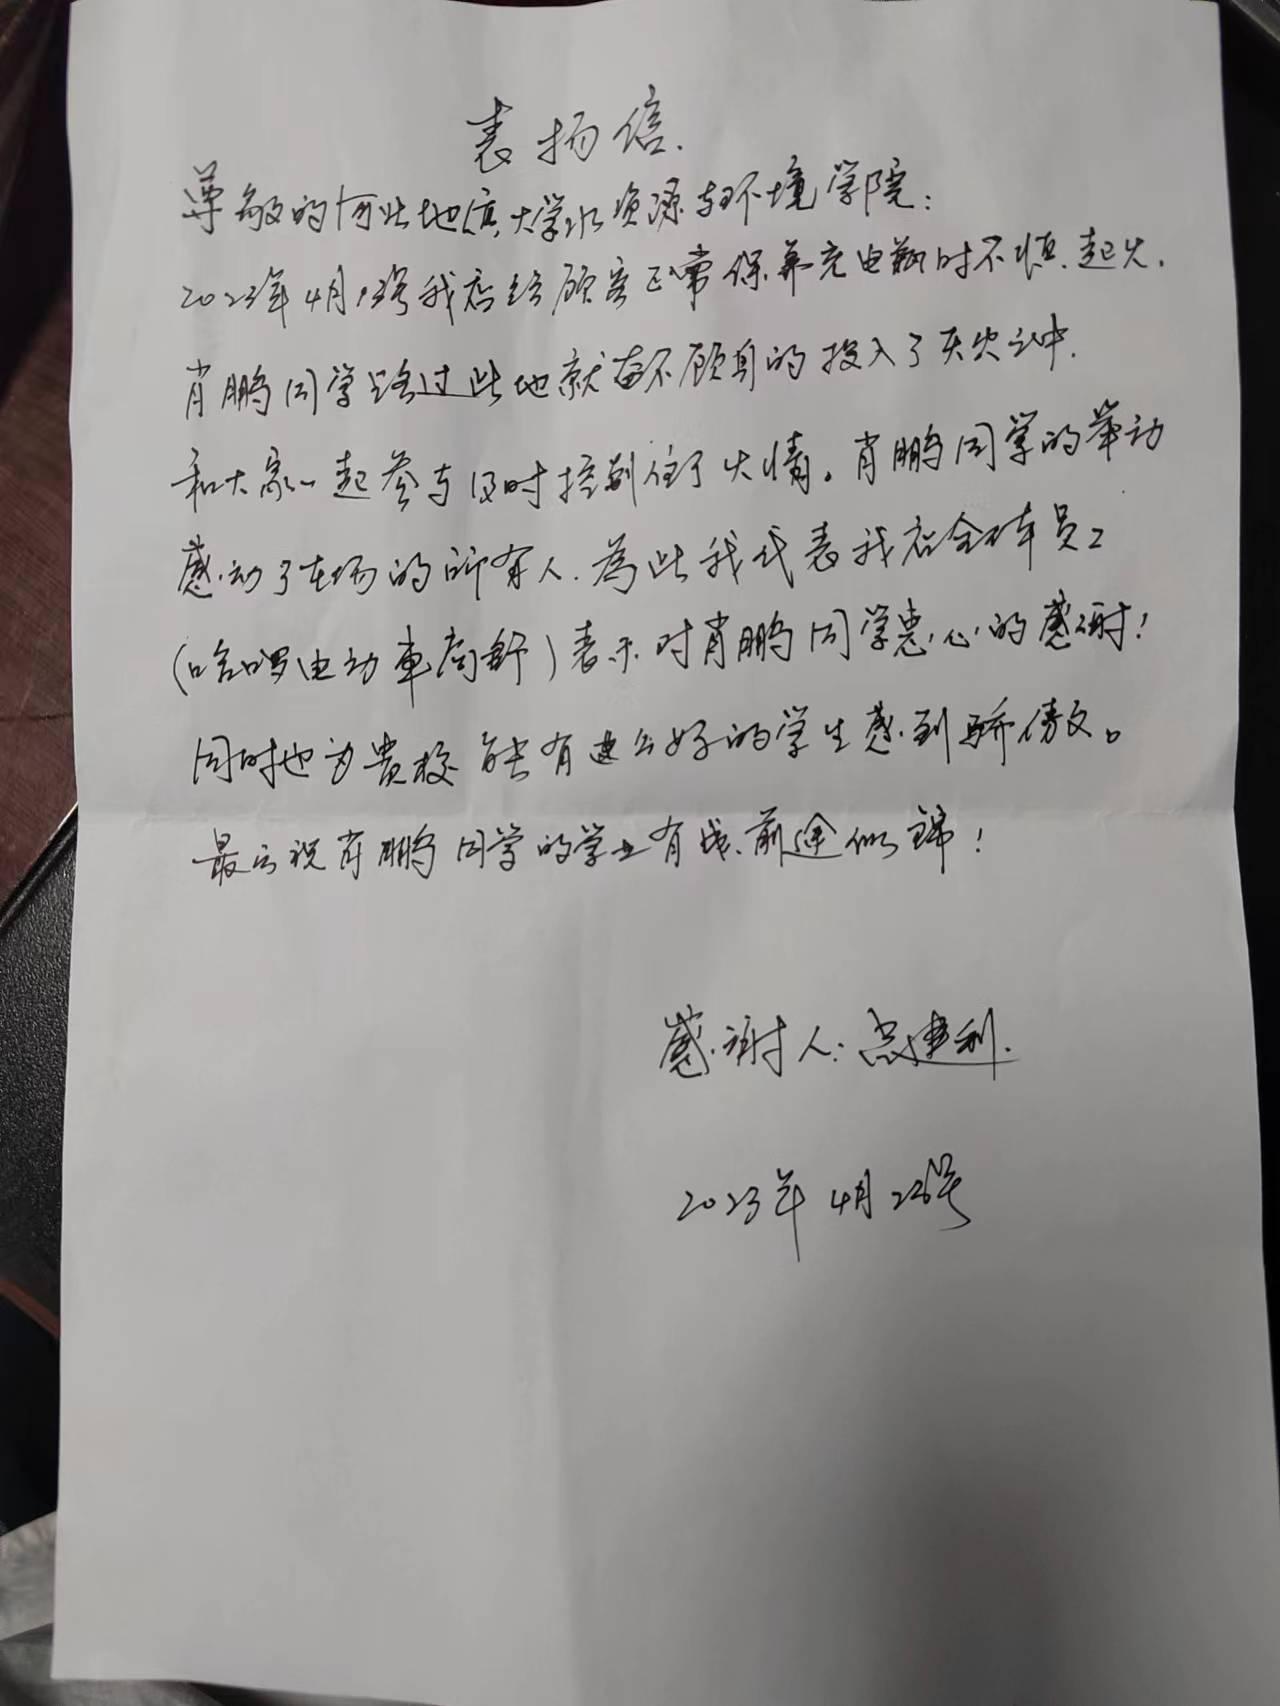 表扬信.
尊敬的河北地信大学水资源与环境学院:
2023年4月13号我店给顾客正常保养充电瓶时不慎.起火.
肖鹏同学路过此地就奋不顾身的投入了灭火之中.
和大家一起参与及时控制住了火情。肖鹏同学的举动
感动了在场的所有人.為此我代表我店全体员工
(哈啰电动車商舒)表示对肖鹏同学衷心的感谢!
同时也为贵校能有这么好的学生感到骄傲。
最后祝肖鹏同学的学业有成.前途似锦!
感谢人:建利.
2023年4月23号